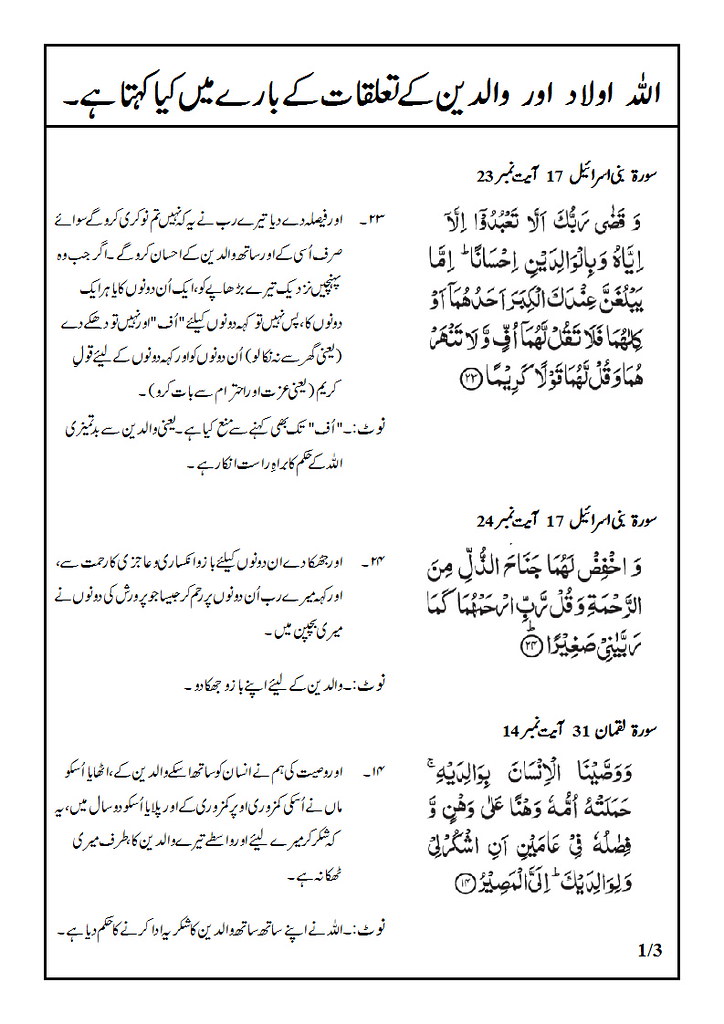 اللہ اولاد اور والدین کے تعلقات کے بارے میں کیا کہتا ہے۔
سورۃ بنی اسرائیل 17 آیت نمبر 23
وَ قَضٰى رَبُّكَ اَلَّا تَعْبُدُوْٓا اِلَّآ
اِيَّاهُ وَبِالْوَالِدَيْنِ اِحْسَانًا ؕ اِمَّا
يَبْلُغَنَّ عِنْدَكَ الْكِبَرَ اَحَدُهُمَآ اَوْ
كِلٰهُمَا فَلَا تَقُلْ لَّهُمَآ اُفٍّ وَّلَا تَنْهَرْ
هُمَا وَقُلْ لَّهُمَا قَوْلًا كَرِيْمًا ﴿۲۳﴾
۲۳۔ اور فیصلہ دے دیا تیرے رب نے یہ کہ نہیں تم نوکری کرو گے سوائے
صرف اُسی کے اور ساتھ والدین کے احسان کرو گے ۔ اگر جب وہ
پہنچیں نزدیک تیرے بڑھاپے کو، ایک اُن دونوں کا یا ہر ایک
دونوں کا، پس نہیں تو کہہ دونوں کیلئے "اُف" اور نہیں تو دھکے دے
(یعنی گھر سے نہ نکالو) اُن دونوں کو اور کہہ دونوں کے لیئے قولِ
کریم (یعنی عزت اور احترام سے بات کرو) ۔
نوٹ:۔ "اُف" تک بھی کہنے سے منع کیا ہے۔ یعنی والدین سے بدتمیزی
اللہ کے حکم کا براہِ راست انکار ہے ۔
سورۃ بنی اسرائیل 17 آیت نمبر 24
وَ اخْفِضْ لَهُمَا جَنَاحَ الذُّلِّ مِنَ
الرَّحْمَةِ وَ قُلْ رَّبِّ ارْحَمْهُمَا كَمَا
رَبَّيٰنِيْ صَغِيْرًا ؕ ﴿۲۴﴾
۲۴۔ اور جھکا دے ان دونوں کیلئے بازو انکساری و عاجزی کا رحمت سے،
اور کہہ میرے رب اُن دونوں پر رحم کر جیسا جو پرورش کی دونوں نے
میری بچپن میں ۔
نوٹ:۔ والدین کے لیئے اپنے بازو جھکا دو ۔
سورۃ لقمان 31 آیت نمبر 14
وَوَصَّيْنَا الْاِنْسَانَ بِوَالِدَيْهِ ۚ
حَمَلَتْهُ اُمُّهٗ وَهْنًا عَلٰى وَهْنٍ وَّ
فِصٰلُهٗ فِيْ عَامَيْنِ اَنِ اشْكُرْ لِيْ
وَلِوَالِدَيْكَ ؕ اِلَيَّ الْمَصِيْرُ ﴿۱۴﴾
۱۴۔ اور وصیت کی ہم نے انسان کو ساتھ اسکے والدین کے، اٹھایا اُسکو
ماں نے اُسکی کمزوری اوپر کمزوری کے اور پلایا اُسکو دو سال میں، یہ
کہ شکر کر میرے لیئے اور واسطے تیرے والدین کا طرف میری
ٹھکانہ ہے ۔
نوٹ:۔ اللہ نے اپنے ساتھ ساتھ والدین کا شکریہ ادا کرنے کا حکم دیا ہے ۔
1/3